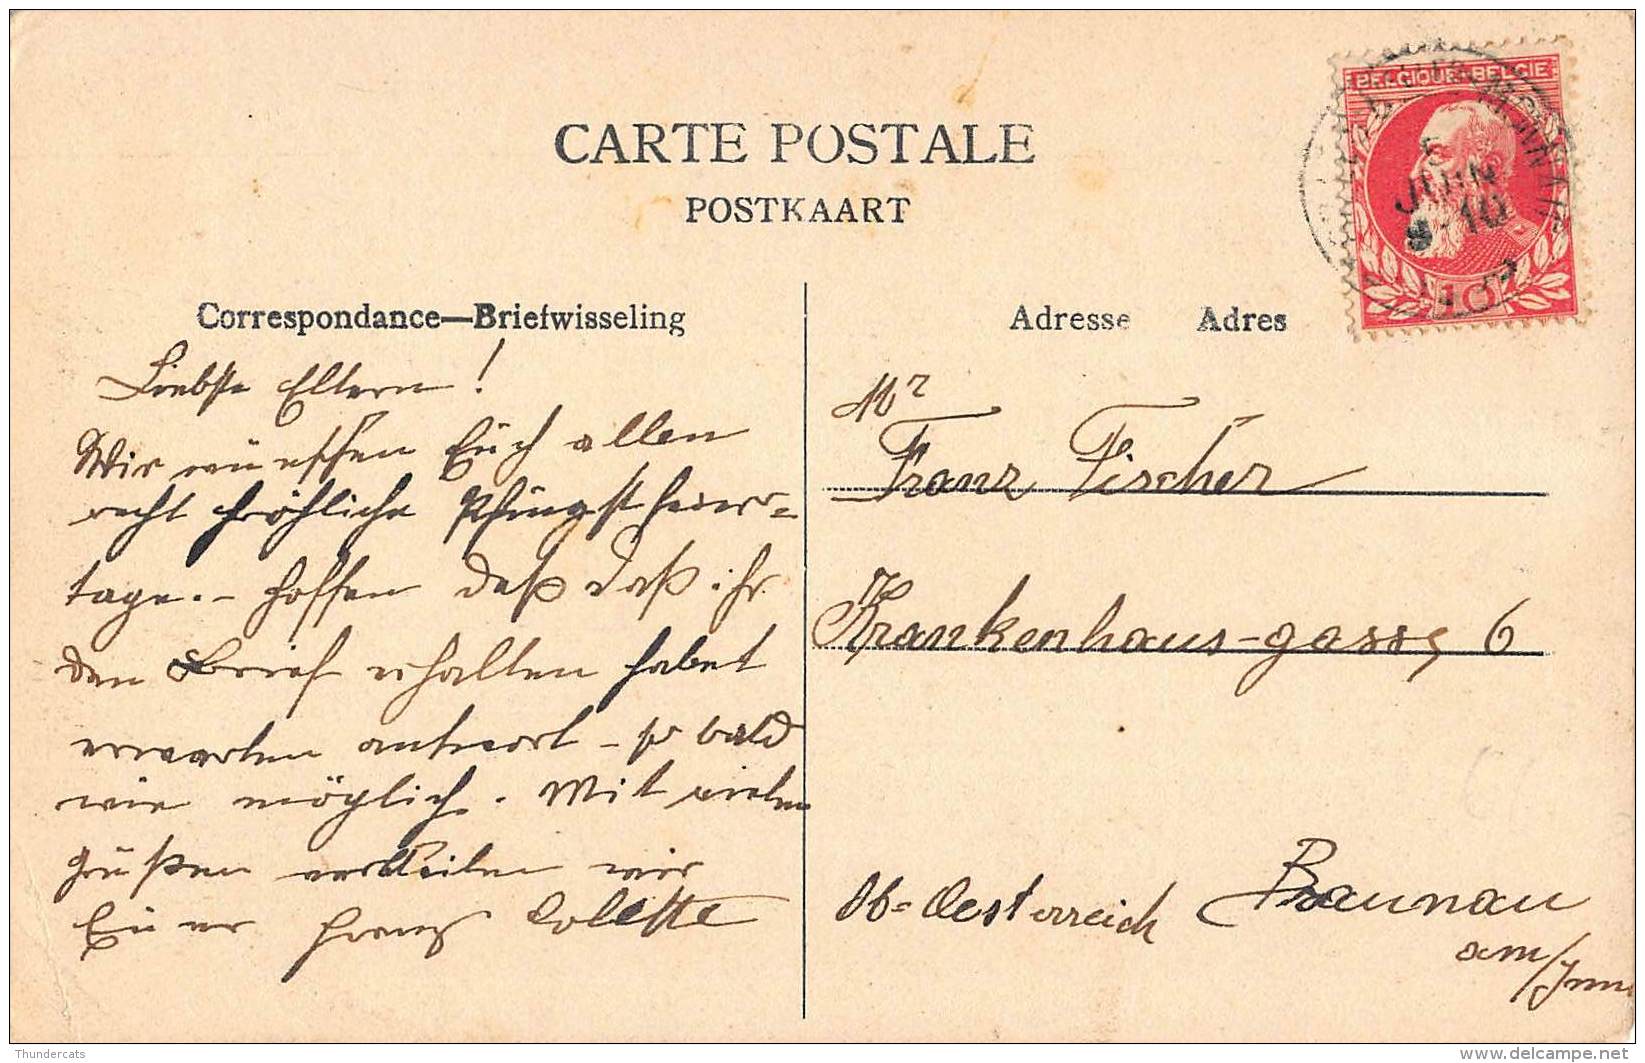 CARTE POSTALE
POSTKAART
BELGIQUE-BELGIE
5
JUIN
10
10
Correspondance—Briefwisseling
Adresse Adres
Liebste Eltern!
Wir wünschen Euch allen
recht fröhliche Pfingstfeier=
tage.- hoffen daß daß ihr
den Brief erhalten habet
erwarten antwort - so bald
wie möglich. Mit vielen
Grüßen verbleiben wir
Euer Franz Colette
Mr
Franz Fischer
Krankenhaus-gasse 6
Ob=Oesterreich Braunau
am/Inn
Thundercats
www.delcampe.net